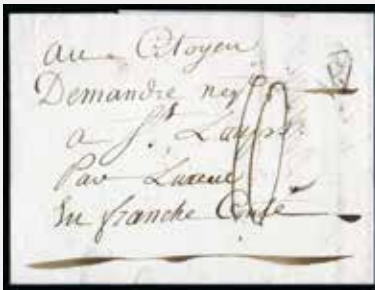 au Citoyen
Demandre
a St.
Par Luxeuil
En franche Comté